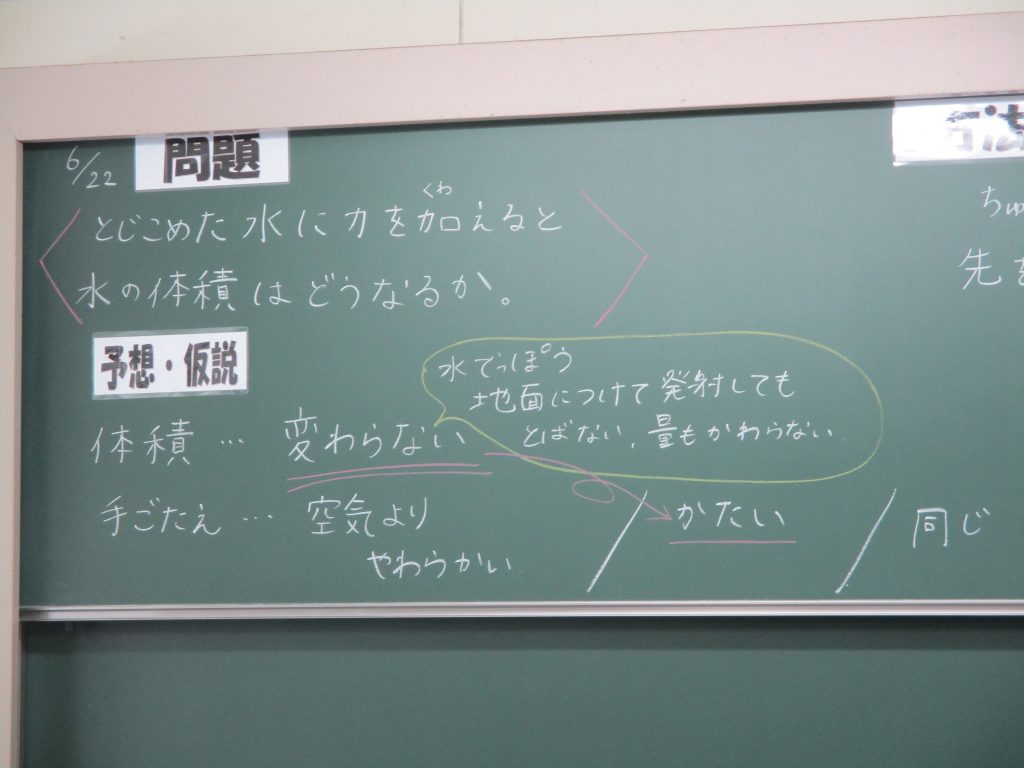 6/22
問題
とじこめた水に力を加えると
くわ
水の体積はどうなるか。
予想・仮説
水でっぽう
地面につけて発射しても
とばない,量もかわらない
体積…変わらない
手ごたえ…空気より
やわらかい
/かたい/同じ
ちゅ
先を